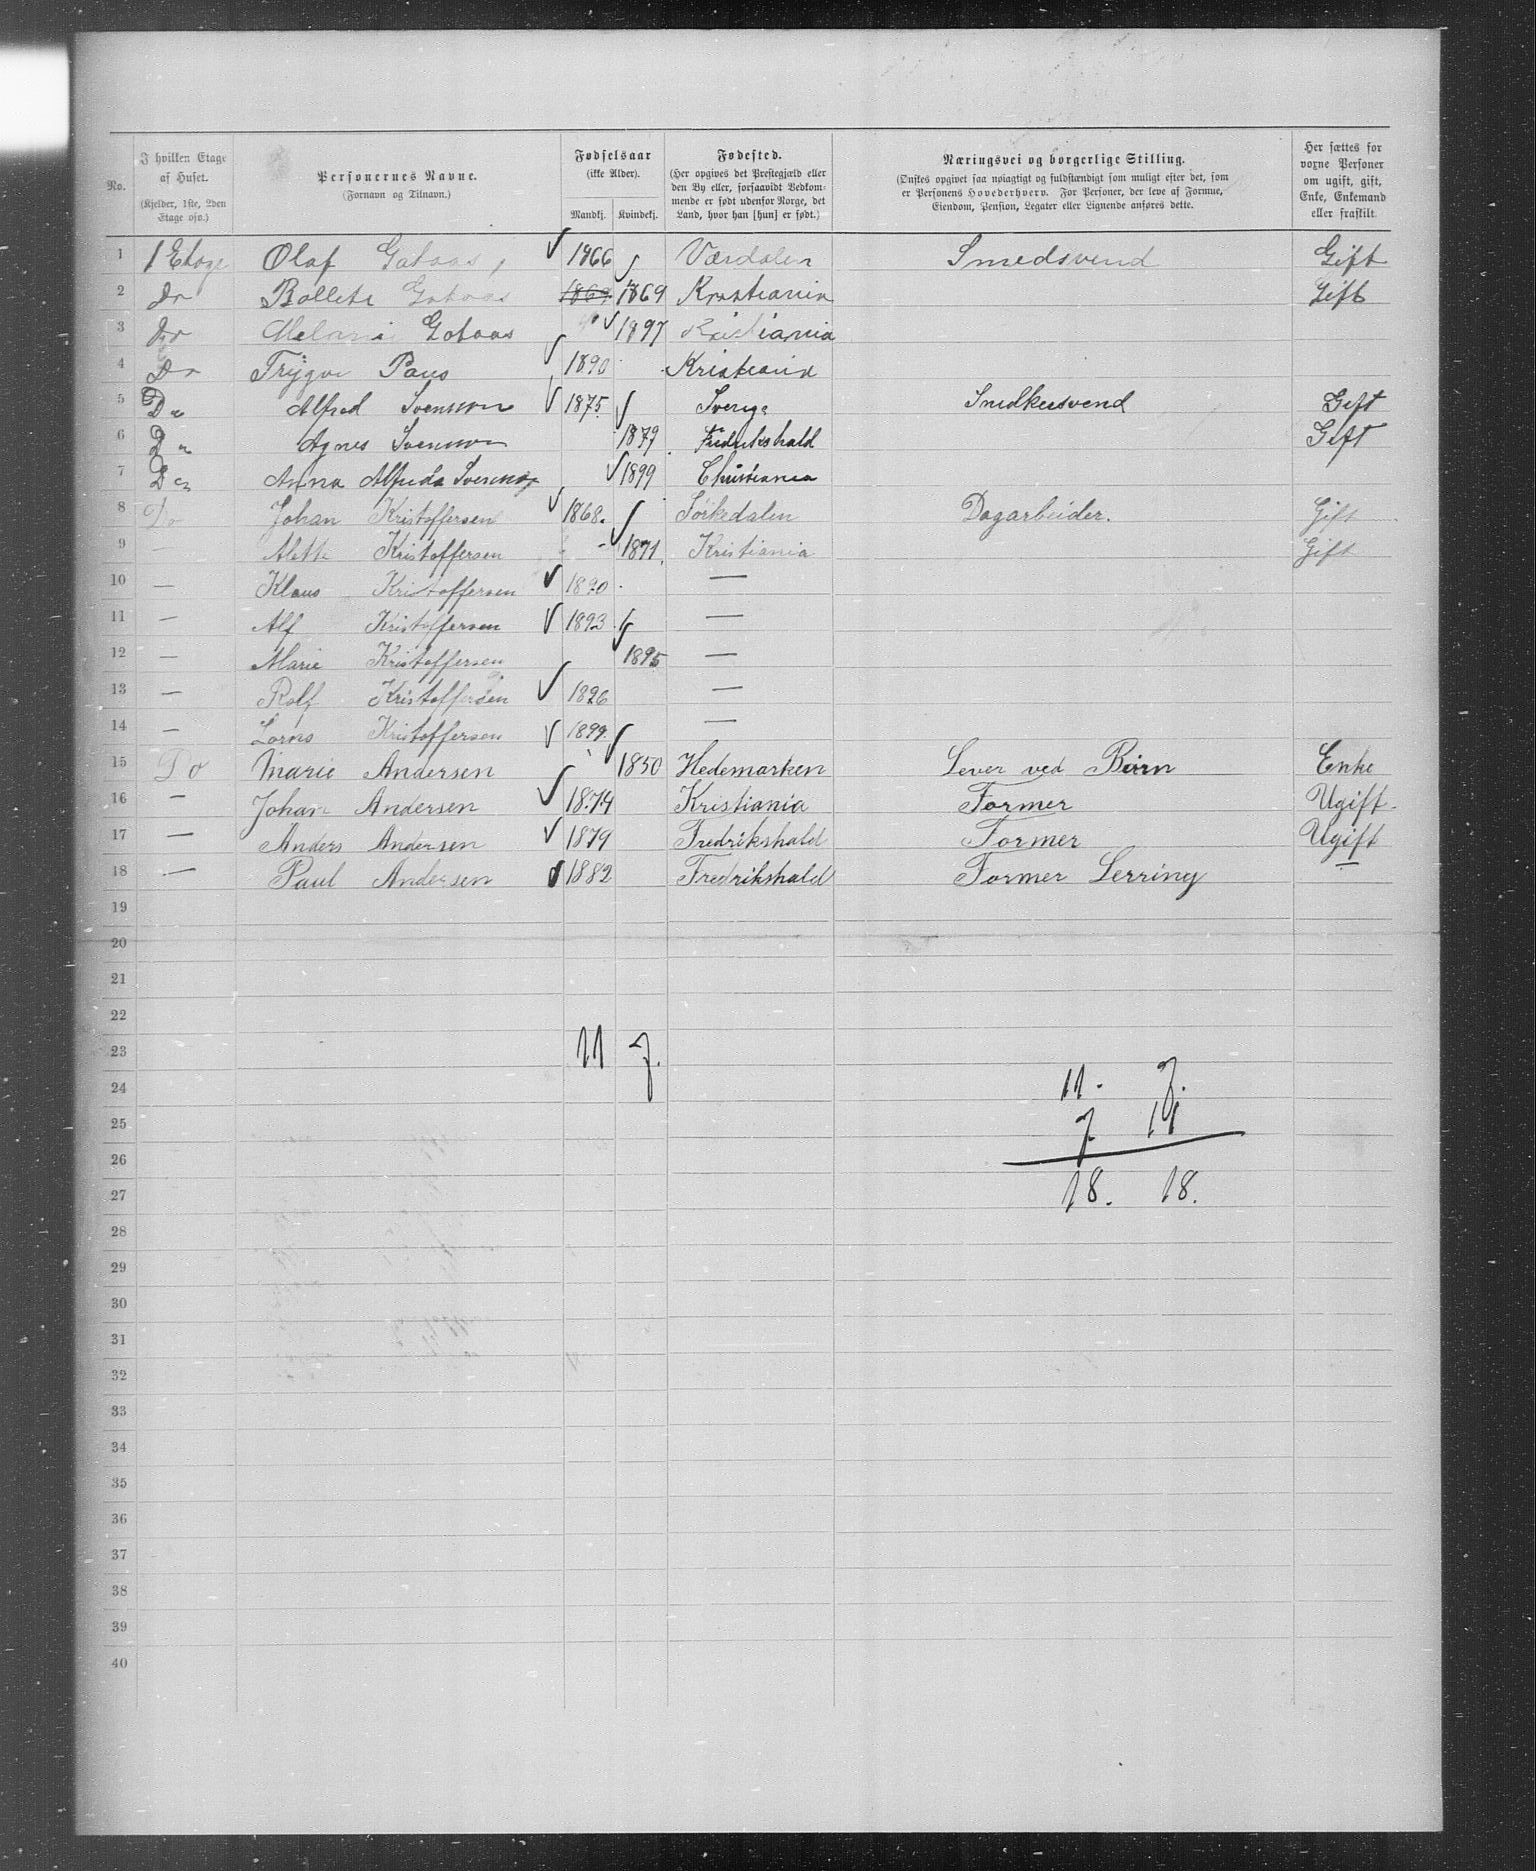 No. I hvilken Etage af Huset. (Kjelder, 1ste, 2den Etage osv.) Personernes Navne. (Fornavn og Tilnavn.) Fødselsaar (ikke Alder). Mandkj. Kvindekj. Fødested. (Her opgives det Prestegjæld eller den By eller, forsaavidt Vedkommende er født udenfor Norge, det Land, hvor han [hun] er født.) Næringsvei og borgerlige Stilling. (Ønskes opgivet saa nøiagtigt og fuldstændigt som muligt efter det, som er Personens Hovederhverv. For Personer, der leve af Formue, Eiendom, Pension, Legater eller Lignende anføres dette. Her sættes for voxne Personer om ugift, gift, Enke, Enkemand eller fraskilt.
1 1 Etage Olaf Gataas, 1866 Værdalen Smedsvend Gift
2 Do Bollete Gataas 1869 1869 Kristiania Gift
3 Do Gotaas 1897 Kristiania
4 Do Trygve Paus 1890 Kristiania
5 Do Alfred Svensson 1875 Sverige Snedkersvend Gift
6 Do Agnes Svensson 1879 Fredrikshald Gift
7 Do Anna Alfrida Svensson 1899 Christiania
8 Do Johan Kristoffersen 1868. Sørkedalen Dagarbeider. Gift
9 — Alette Kristoffersen - 1871. Kristiania Gift
10 — Klaus Kristoffersen 1890 —
11 — Alf Kristoffersen 1893 —
12 — Marie Kristoffersen 1895 —
13 — Rolf Kristoffersen 1896 —
14 — Kristoffersen 1899. —
15 Do Marie Andersen 1850 Hedemarken Lever ved Børn Enke
16 — Johan Andersen 1874 Kristiania Former Ugift
17 — Anders Andersen 1879 Fredrikshald Former Ugift
18 — Paul Andersen 1882 Fredrikshald Former Lerring —
19
20
21
22
23 11 7.
24 11. 7.
25 7 11
26
27 18. 18.
28
29
30
31
32
33
34
35
36
37
38
39
40